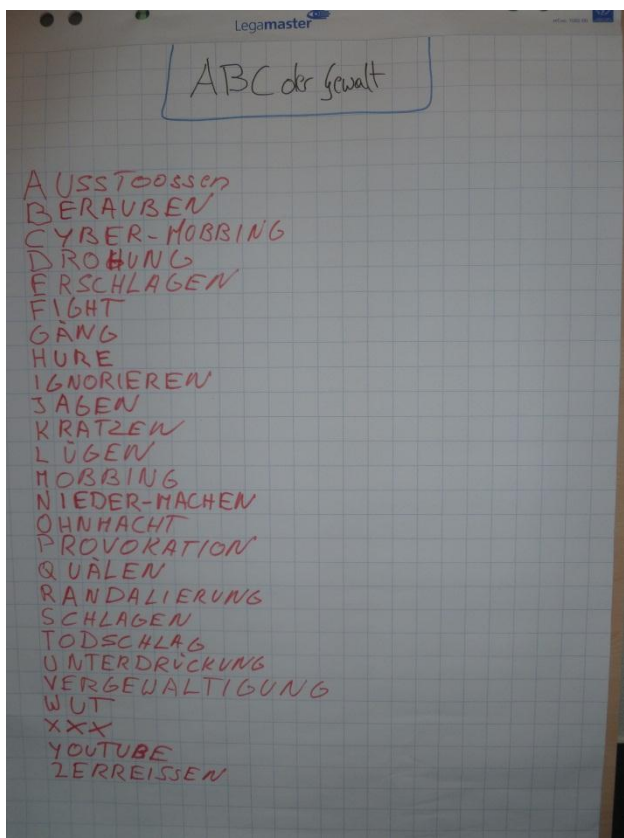 Legamaster
ABC der Gewalt
AUSSTOOSSEN
BERAUBEN
CYBER-MOBBING
DROHUNG
ERSCHLAGEN
FIGHT
GÄNG
HURE
IGNORIEREN
JAGEN
KRATZEN
LÜGEN
MOBBING
NIEDER-MACHEN
OHNMACHT
PROVOKATION
QUÄLEN
RANDALIERUNG
SCHLAGEN
TODSCHLAG
UNTERDRÜCKUNG
VERGEWALTIGUNG
WUT
XXX
YOUTUBE
ZERREISSEN